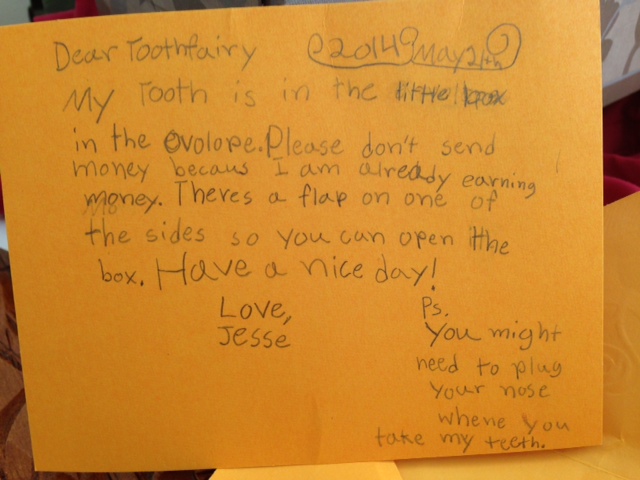 Dear Toothfairy 2014 May 21th
My Tooth is in the little box
in the evolope. Please don't send
money becaus I am already earning
money. Theres a flap on one of
the sides so you can open the
box. Have a nice day!
Love,
Jesse
Ps.
You might
need to plug
your nose
whene you
take my teeth.